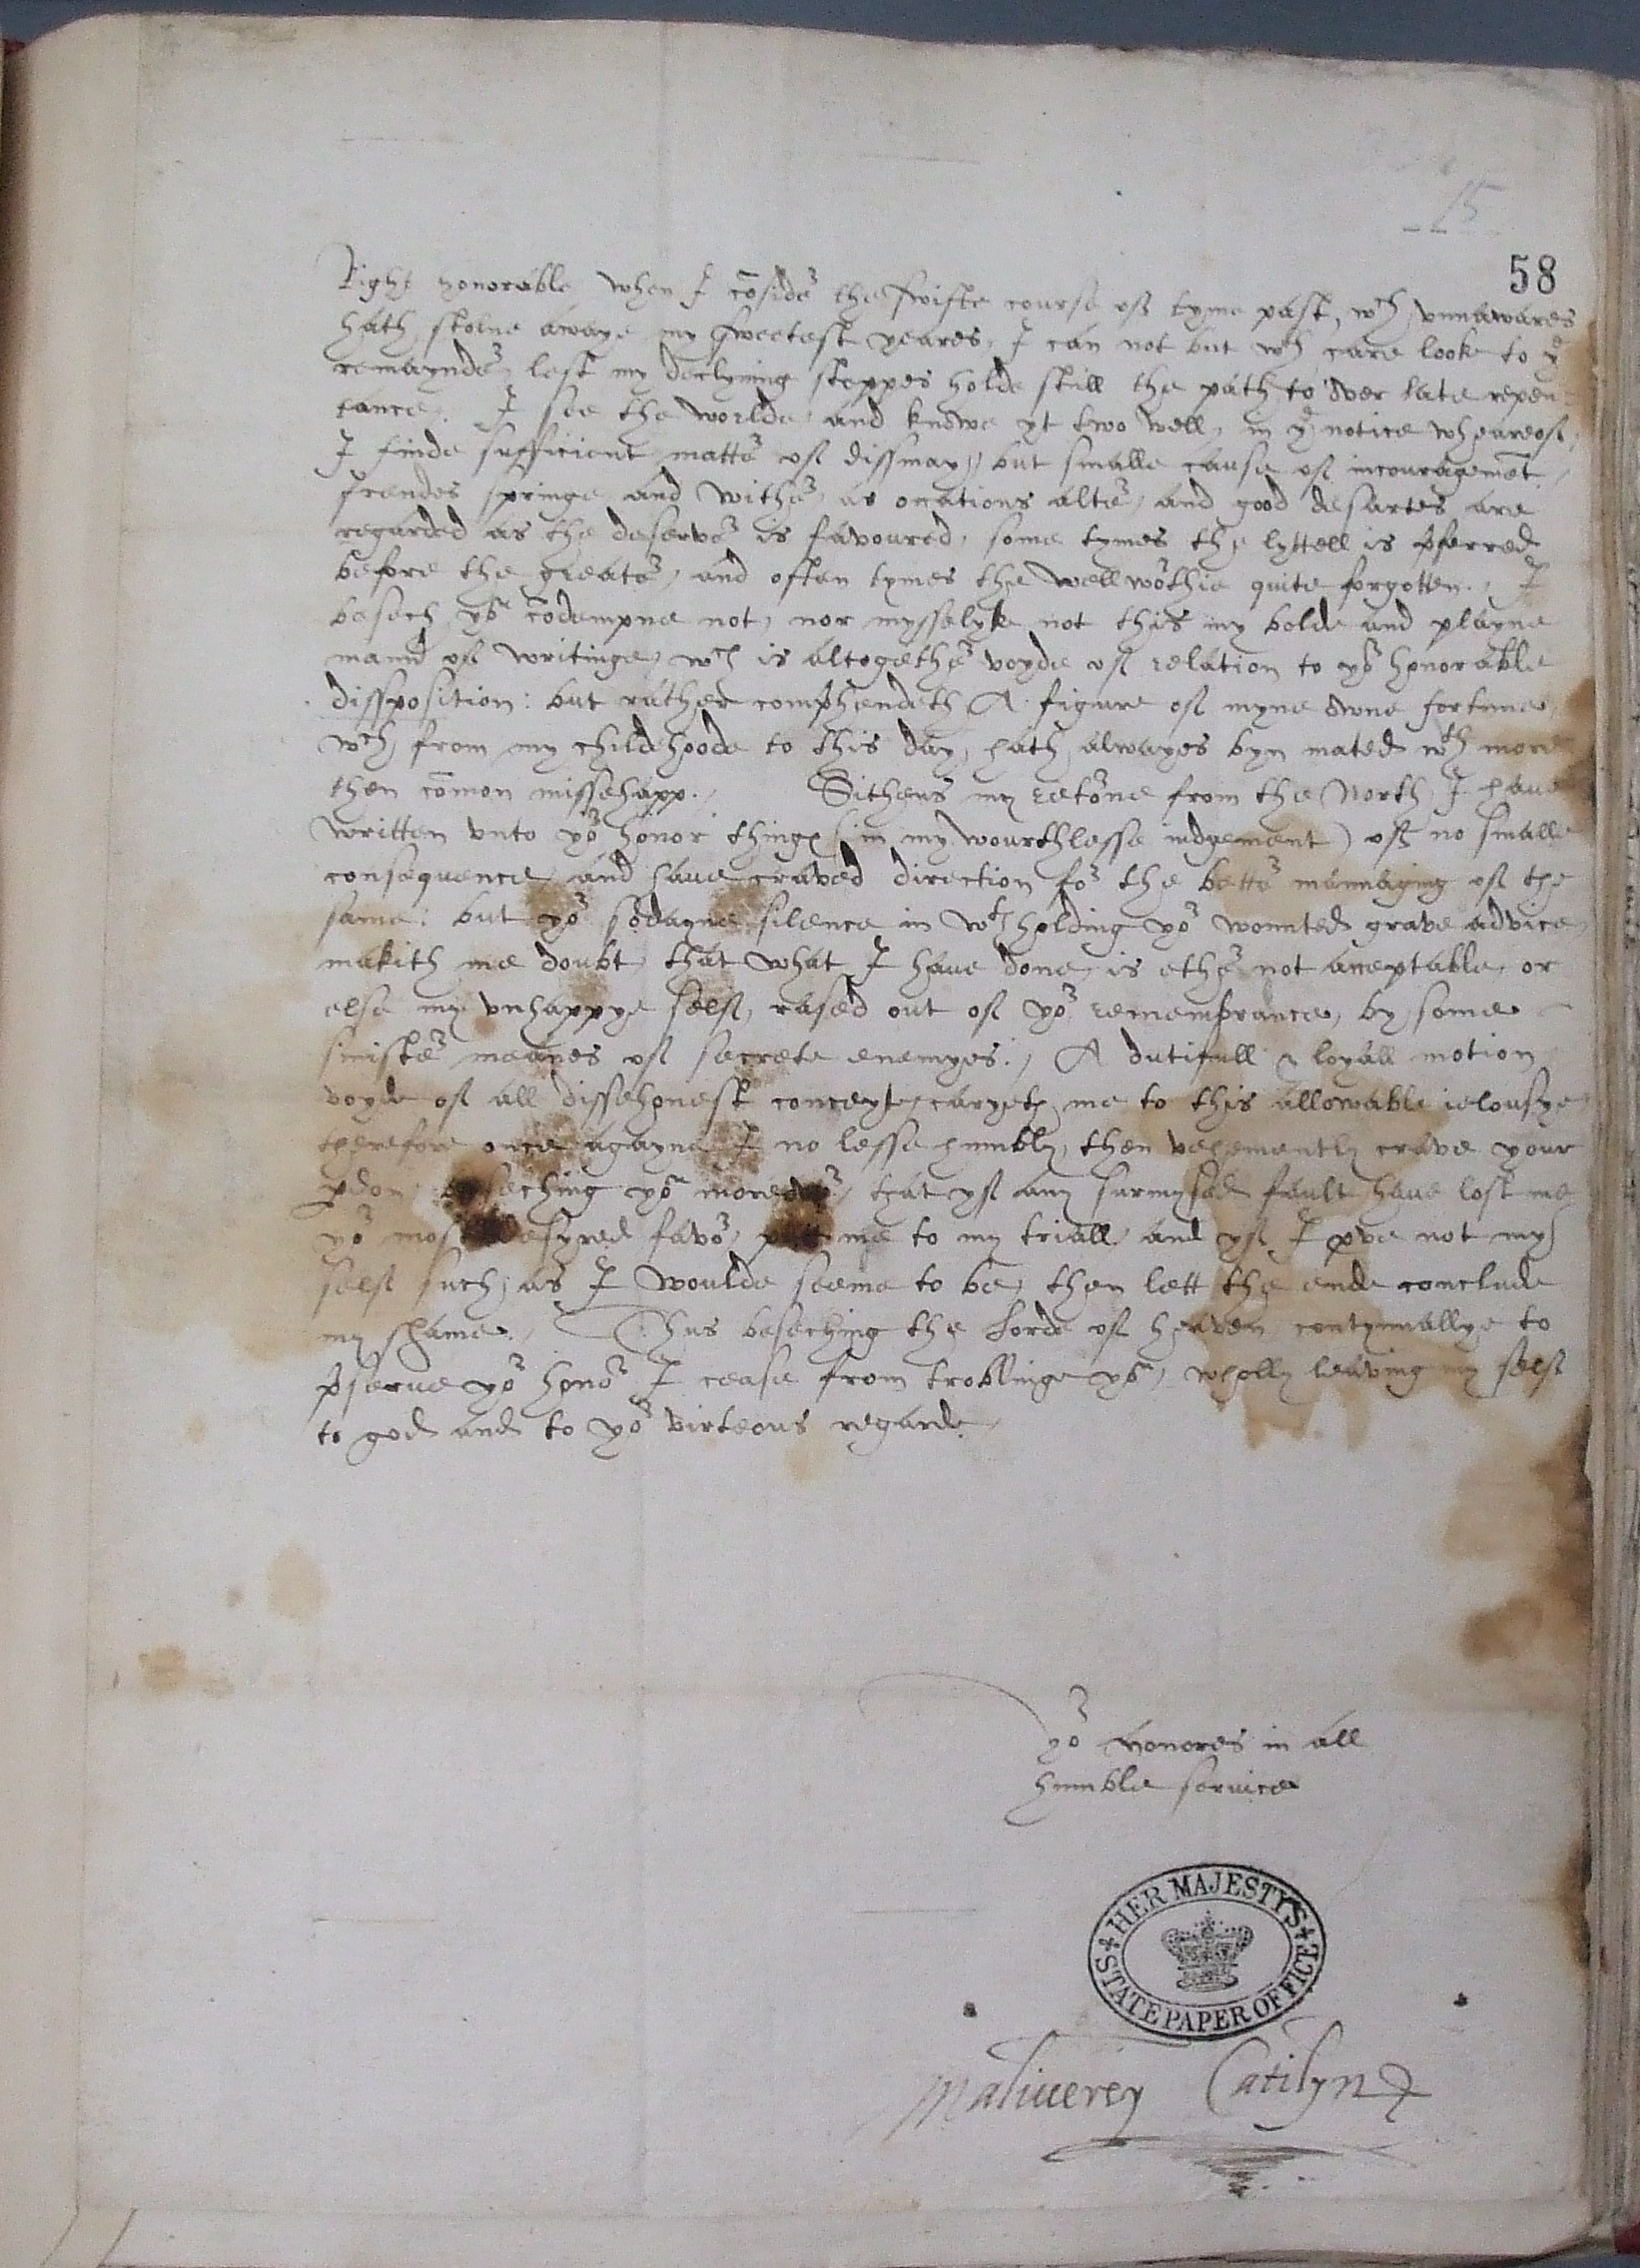 15
58
Right honorable, when I cōsider the swifte course off tyme past, wch unnawares
hath stolne awaye my sweetest yeares, I can not but wth care look to ye
remaynder, lest my declyning steppes holde still the path to over late repen
tance. I see the worlde, and knowe yt two well, in ye notice wheareoff,
I finde sufficient matter off dissmay, but smalle cause off incouragemēt,
frendes springe and wither, as ocations alter, and good desartes are
regarded as the deserver is favoured, some tymes the lyttell is pferred
before the greater, and often tymes the well worthie quite forgotten. I
besech you cōdempne not, nor mysselyke not this my bolde and playne
manner off writinge, wch is altogether voyde off relation to yor honorable
dissposition: but rather comphendeth A figure off myne owne fortune,
wch, from my childehoode to this day, hath alwayes byn mated wth more
then cōmon missehapp. Sithens my retorne from the North I have
written unto yor honor things (in my wourthlesse iudgement) off no smalle
consequence, and have craved direction for the better mannaging off the
same: but yor sodayne silence in wthholding yor wounted grave advice,
makith me doubt, that what I have done, is ether not acceptable, or
else my unhappye selff, rased out off yor remembrance, by some
sinister meanes off secrete enemyes. A dutifull & loyall motion
voyde off all dissehonest conceyte, caryeth me to this allowable ielousye
therefore once agayne I no lesse humbly, then vehemently crave your
pdon, beseching you moreover, that yff any surmysed fault have lost me
yor most desyred favor, putt me to my triall, and yff I prve not my
selff such, as I woulde seeme to be, then lett the ende conclude
my shame. Thus beseching the Lorde off heaven contynuallye to
pserve yor honor I cease from troblinge you, wholly leaving my selff
to god and to yor virteous regarde.
yor honores in all
humble service
HER MAJESTY'S STATE PAPER OFFICE
Maliverey Catilyn